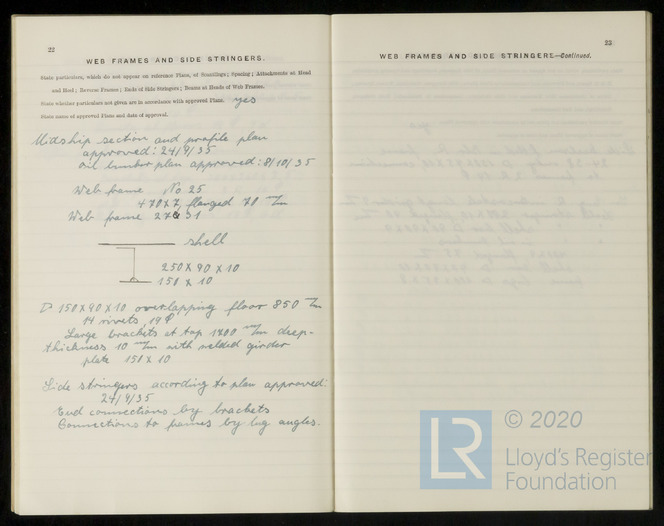 22
WEB FRAMES AND SIDE STRINGERS.
State particulars, which do not appear on reference Plans, of Scantlings; Spacing; Attachments at Head
and Heel; Reverse Frames; Ends of Side Stringers; Beams at Heads of Web Frames.
State whether particulars not given are in accordance with approved Plans. yes
State names of approved Plans and date of approval.
Midship section and profile plan
approved: 24/9/35
Oil bunker plan approved: 8/10/35
Web frame No 25
470x7, flanged 70 m/m
Web frame 27 & 31
shell
250 x 90 x 10
150 x 10
150x90x10 overlapping floor 850 m/m
14 rivets, 19 φ
Large brackets at top 1200 m/m deep-
thickness 10 m/m with welded girder
plate 150 x 10
Side stringers according to plan approved:
24/9/35
End connections by brackets
Connections to frames by lug angles.
23
WEB FRAMES AND SIDE STRINGERS—Continued.
LR © 2020
Lloyd's Register
Foundation